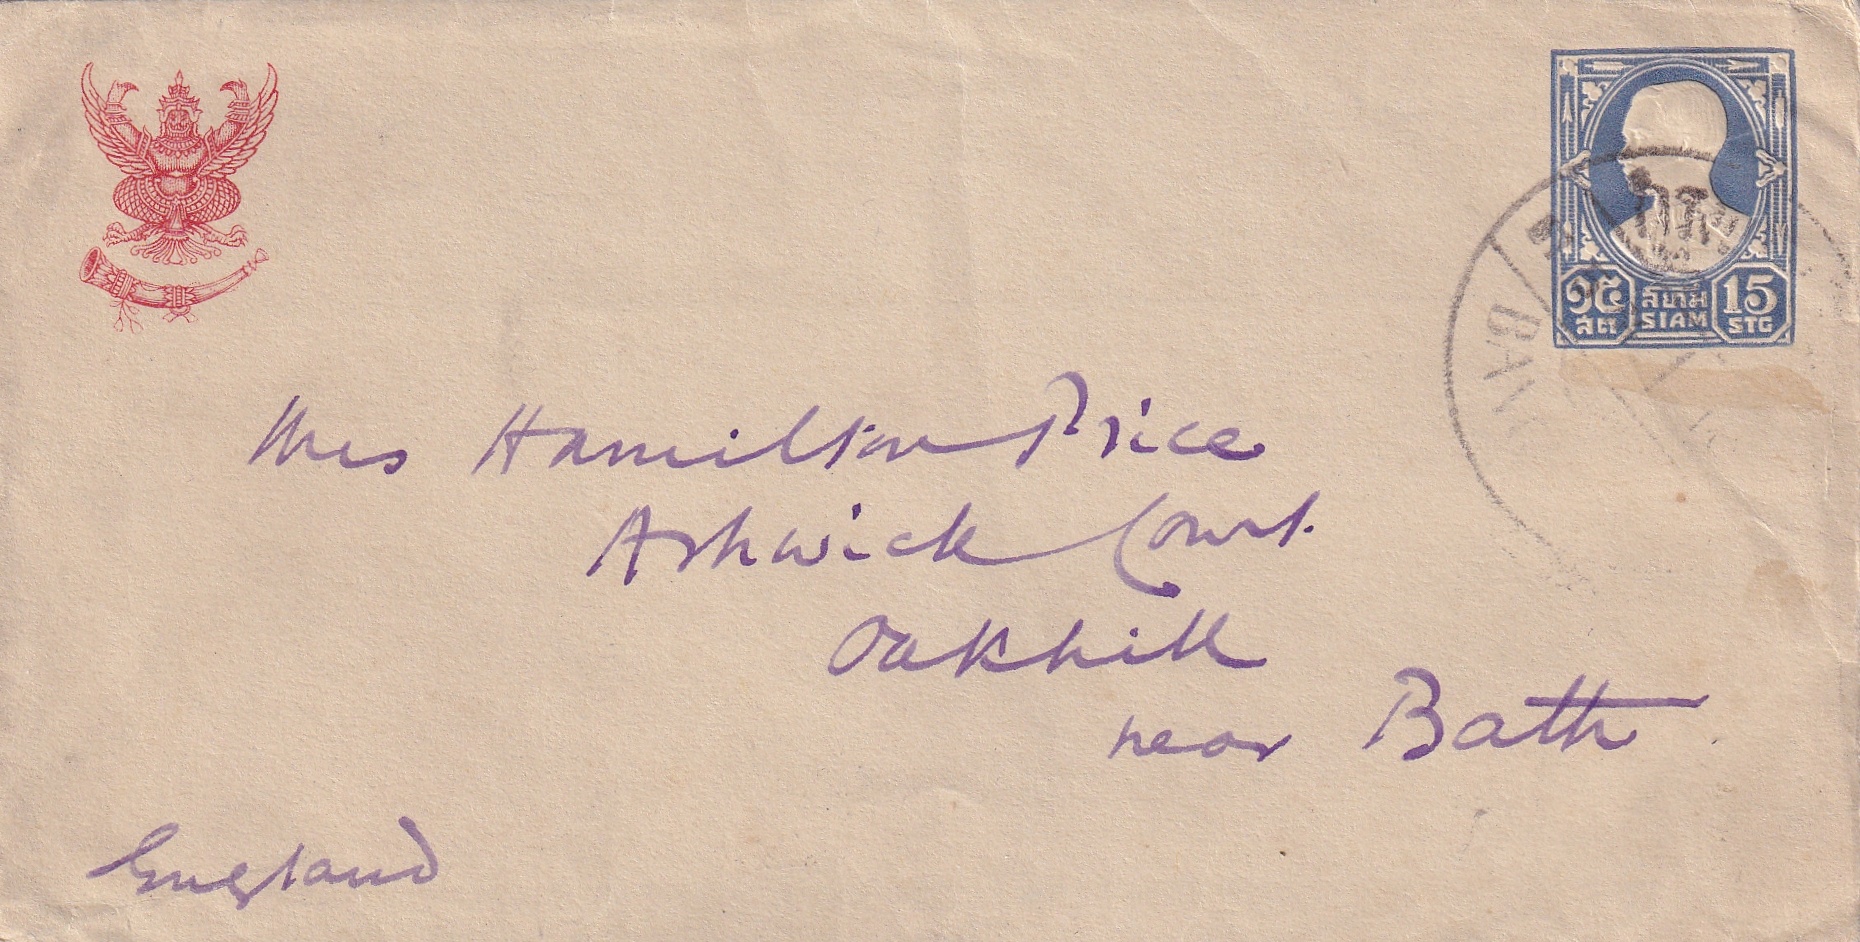 ๑๕ สยาม 15
สต SIAM STG
Mrs Hamilton Price
Ashwick Court.
Oakhill
near Bath.
England